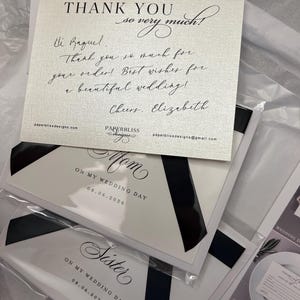 THANK YOU
so very much!
Hi Raquel,
Thank you so much for
your order! Best wishes for
a beautiful wedding!
Cheers, Elizabeth
paperblissdesigns.com
PAPERBLISS
designs
paperblissdesigns@gmail.com
Mom
ON MY WEDDING DAY
Sister
ON MY WEDDING DAY